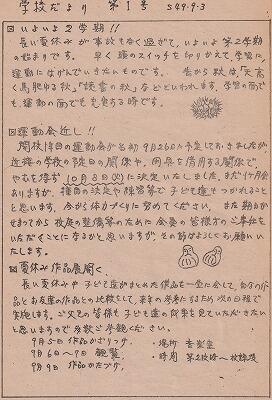 学校だより 第1号 S49.9.3
☒ いよいよ2学期!!
長い夏休みが事故もなく過ぎて、いよいよ第2学期
の始まりです。早く頭のスイッチを切りかえて、学習に、
運動にはげんでいきたいものです。昔から秋は、「天高く
馬肥ゆる秋」「読書の秋」などといわれます。学習の面で
も、運動の面でも充実する時です。
☒ 運動会近し!!
開校1年目の運動会が当初9月26日に予定しておきましたが、
近隣の学校の予定日の関係や、用具を借用する関係で、
やむを得ず10月8日(火)に決定いたしました。まだ1ケ月余
ありますが、種目の決定や練習等で子ども達もつかれること
と思います。今から体力づくりに努めてください。また期日が
せまってから校庭の整備等のために会員の皆様方のご奉仕を
いただくことになるかと思いますが、その節はよろしくお願いい
たします。
☒ 夏休み作品展開く。
長い夏休みに子ども達がまとめた作品を一堂に会して、自分の作
品とお友達の作品との比較をして、来年の参考にするため次の日程で
実施します。ご父兄の皆様も子ども達の成果を見ていただきたい
と思いますので多数ご参観ください。
9月5日 作品かざりつけ ・場所 音楽室
9月6日〜7日 観覧 ・時間 第2校時〜放課後
9月9日 作品かたづけ